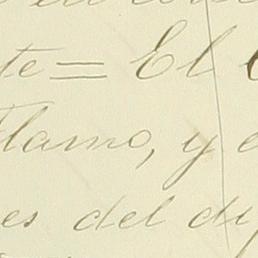 te = El
lamo, y
es del di